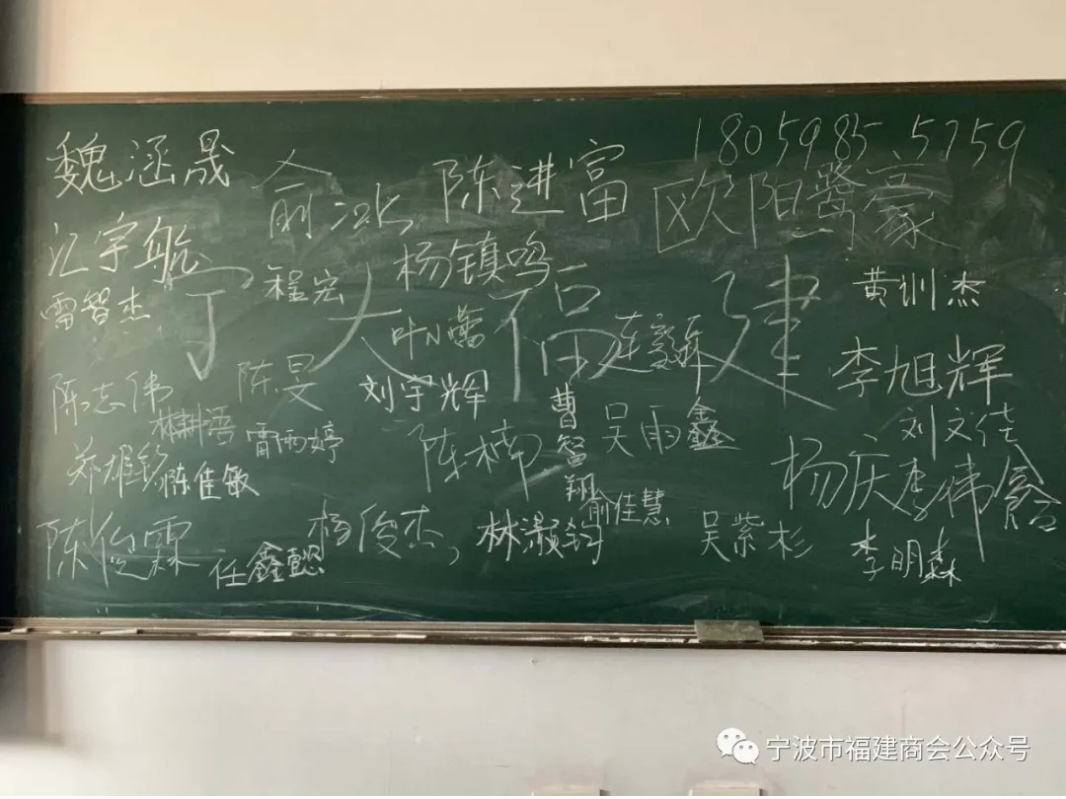 魏涵晟
俞冰
陈进富
18059855759
欧阳鹭豪
江宇航
程宏
杨镇鸣
黄训杰
雷智杰
宁大福建
叶小蕾
李旭辉
陈志伟
陈旻
刘宇辉
曹智翔
吴雨鑫
刘文佳
雷雨婷
陈楠
杨庆
李伟鑫
郑雄钦
陈佳敏
俞佳慧
陈俊霖
任鑫懿
杨俊杰,
林灏钧
吴紫杉
李明森
宁波市福建商会公众号